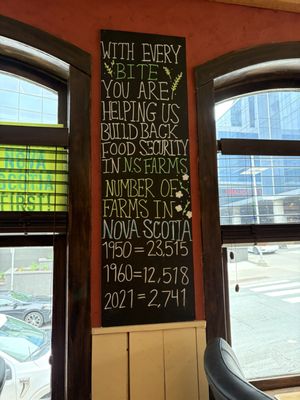 WITH EVERY
BITE
YOU ARE
HELPING US
BUILD BACK
FOOD SECURITY
IN N.S FARMS
NUMBER OF
FARMS IN
NOVA SCOTIA
1950 = 23,515
1960 = 12,518
2021 = 2,741
NOVA
SCOTIA
FIRST!